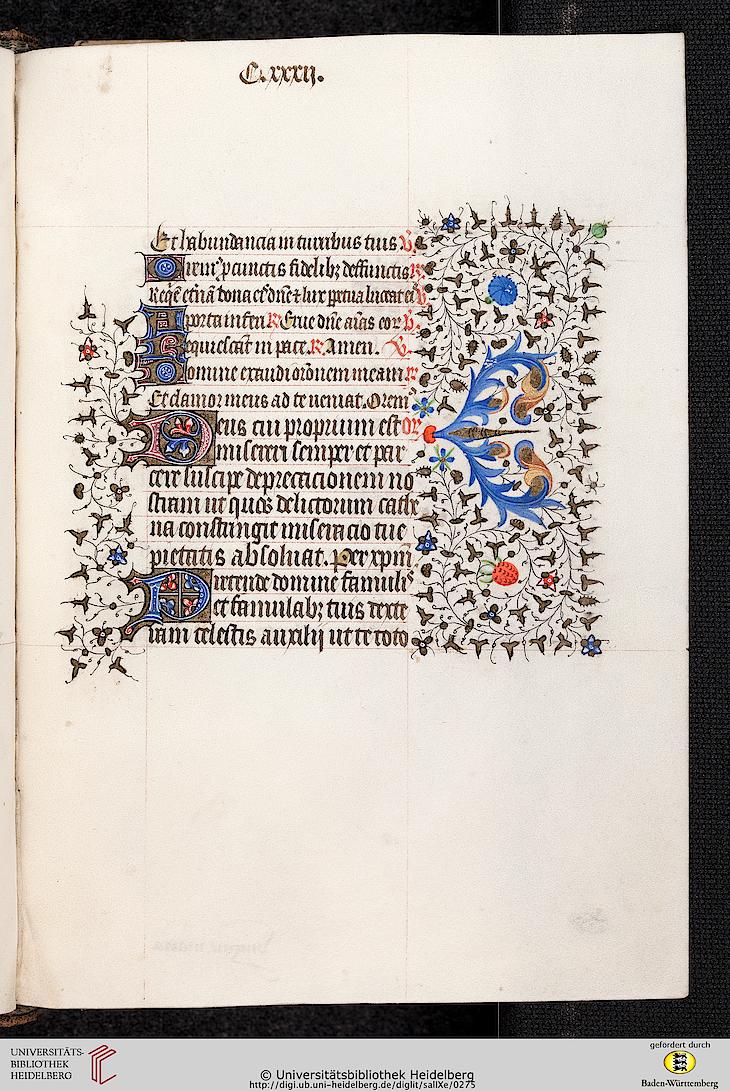 C.xxxij.
Et habundancia in turribus tuis V.
Orem9 p cunctis fidelib3 deffunctis R
Reqē etnā dona eis dn̄e & lux ppetua luceat eis V
A porta inferi R Erue dn̄e aīas eor V.
Requiescāt in pace. R Amen. V.
Domine exaudi orōnem meam R
Et clamor meus ad te veniat. Orem9
Deus cui proprium est or
misereri semper et par
cere suscipe deprecacionem no
stram ut quos delictorum cathe
na constringit miseracio tue
pietatis absoluat. per xpm̄.
Pretende domine famulis
et famulab3 tuis dexte
ram celestis auxilij ut te toto
UNIVERSITÄTS-
BIBLIOTHEK
HEIDELBERG
© Universitätsbibliothek Heidelberg
http://digi.ub.uni-heidelberg.de/diglit/salIXe/0275
gefördert durch
Baden-Württemberg